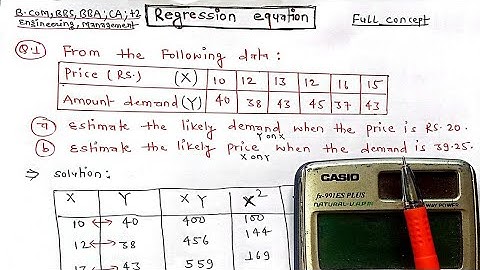 B.COM, BBS, BBA, CA, +2
Engineering, Management
Regression equation
Full concept
Q.1 From the following data:
Price (RS.) (X) 10 12 13 12 16 15
Amount demand (Y) 40 38 43 45 37 43
a Estimate the likely demand when the price is RS. 20.
Y on X
b Estimate the likely price when the demand is 39.25.
X on Y
⇒ Solution:
X Y XY X²
10 ↔ 40 400 100
12 ↔ 38 456 144
43 559 169
CASIO
fx-991ES PLUS
NATURAL-V.P.A.M.
WAY POWER